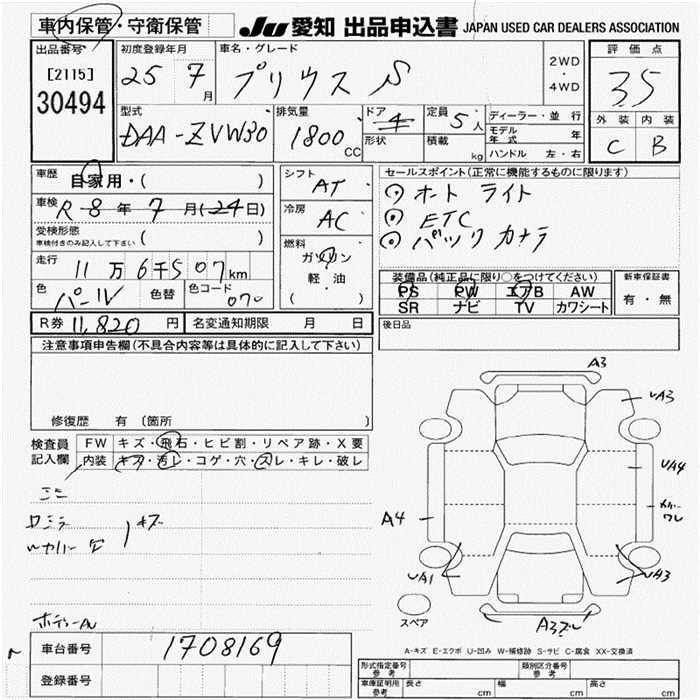 車内保管・守衛保管
JU 愛知 出品申込書 JAPAN USED CAR DEALERS ASSOCIATION
出品番号
[2115]
30494
初度登録年月
25 7月
車名・グレード
プリウス S
2WD
・
4WD
評価点
3.5
外装 内装
C B
型式
DAA-ZVW30
排気量
1800 CC
ドア
4
形状
定員
5人
積載 kg
ディーラー・並行
モデル年式 年
ハンドル 左・右
車歴
自家用・( )
車検
R 8年 7月(24日)
受検形態
車検付きのみ記入して下さい ( )
走行
11万6千507km
色
パール
色替
色コード
070
シフト
AT
冷房
AC
燃料
ガソリン
軽・油
( )
セールスポイント(正常に機能するものに限ります)
オート ライト
ETC
バック カメラ
装備品(純正品に限り○をつけてください)
PS PW エアB AW
SR ナビ TV カワシート
新車保証書
有・無
R券 11,820円 名変通知期限 月 日
後日品
注意事項申告欄(不具合内容等は具体的に記入して下さい)
修復歴 有 〔箇所 〕
検査員記入欄
FW キズ・飛石・ヒビ割・リペア跡・X要
内装 キズ・汚レ・コゲ・穴・スレ・キレ・破レ
キズ
A3
A3
UA4
ワレ
A4
UA1
UA3
A3
スペア
A-キズ E-エクボ U-凹み W-補修跡 S-サビ C-腐食 XX-交換済
車台番号
1708169
登録番号
形式指定番号 参考
類別区分番号 参考
車庫証明用 参考
長さ cm 幅 cm 高さ cm